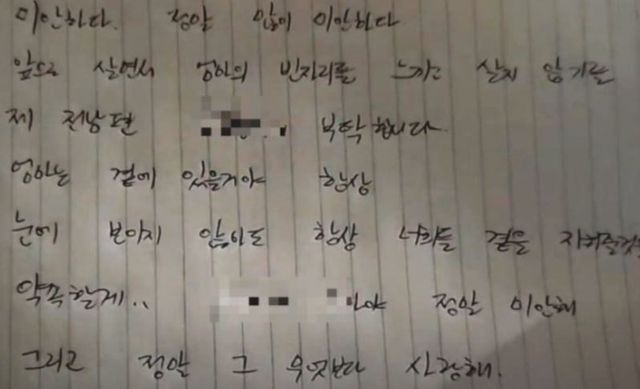 미안하다. 정말 많이 미안하다
앞으로 살면서 엄마의 빈자리를 느끼고 살지 않기를
제 전남편 부탁합니다.
엄마는 곁에 있을거야 항상
눈에 보이지 않아도 항상 너희들 곁을 지켜줄것
약속할게.. 야 정말 미안해
그리고 정말 그 무엇보다 사랑해.